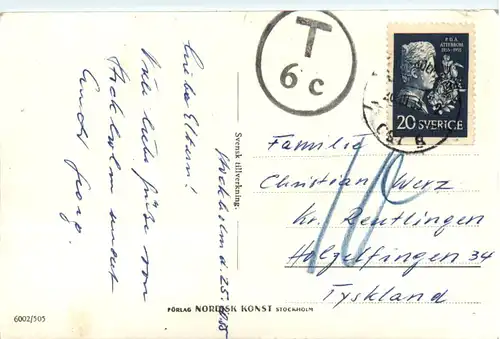 T
6 c
P.D.A.
ATTERBOM
1855 1955
20 SVERIGE
Stockholm d. 25.
Liebe Eltern!
Viele liebe Grüße von
Stockholm sendet
Euch Georg.
Svensk tillverkning.
Familie
Christian Werz
Kr. Reutlingen
Holzelfingen 34
Tyskland
10
FÖRLAG NORDISK KONST STOCKHOLM
6002/505